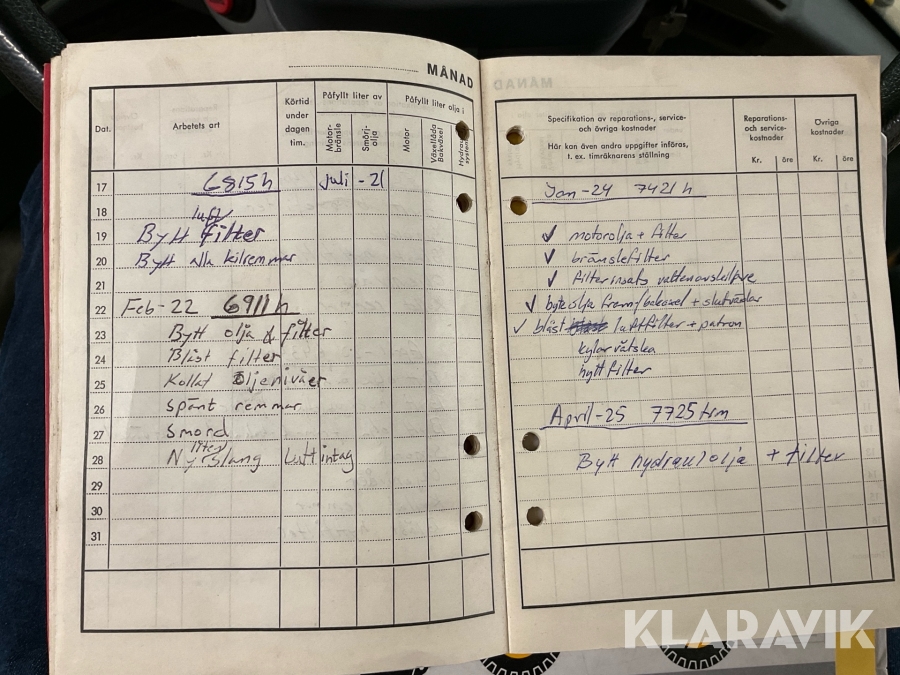 MÅNAD
Dat.
Arbetets art
Körtid under dagen tim.
Påfyllt liter av
Motorbränsle
Smörjolja
Påfyllt liter olja i
Motor
Växellåda Bakväxel
17 6815h juli - 21
18 luft
19 Bytt filter
20 Bytt alla kilremmar
21
22 Feb-22 6911h
23 Bytt olja & filter
24 Blåst filter
25 Kollat oljenivåer
26 Spänt remmar
27 Smord
liten
28 Ny slang Luftintag
29
30
31
Specifikation av reparations-, service-
och övriga kostnader
Här kan även andra uppgifter införas,
t. ex. timräknarens ställning
Reparations-
och service-
kostnader
Kr. öre
Övriga
kostnader
Kr. öre
Jan-24 7421 h
✓ motorolja + filter
✓ bränslefilter
✓ filterinsats vattenavskiljare
✓ byte olja fram/bakaxel + slutväxlar
✓ blåst luftfilter + patron
kylarvätska
hyttfilter
April-25 7725 trm
Bytt hydraulolja + filter
KLARAVIK